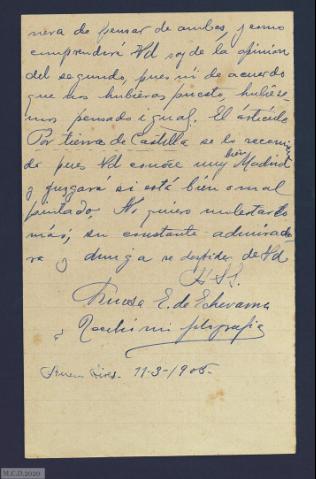 nera de pensar de ambos, y como
comprenderá Vd soy de la opinion
del segundo, pues ni de acuerdo
que nos hubieras puesto, hubiése-
mos pensado igual. El artículo
Por tierra de Castilla se lo recomien
do pues Vd conoce muy bien Madrid
y juzgará si está bien o mal
pintado. No quiero molestarlo
más; su constante admirado-
ra y amiga se despide de Vd
E. de Echevarria
Recibí mi fotografía
Buenos Aires. 11-3-1905.
M.C.D.2020